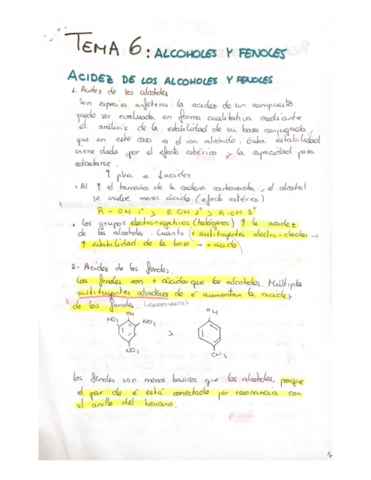 TEMA 6: ALCOHOLES Y FENOLES
ACIDEZ DE LOS ALCOHOLES Y FENOLES
1. Acidez de los alcoholes
Son especies anfóteras la acidez de un compuesto
puede ser evaluada en forma cualitativa mediante
el análisis de la estabilidad de su base conjugada,
que en este caso es el ion alcóxido. Esta estabilidad
viene dada por el efecto estérico y la capacidad para
solvatarse.
↑ pka → ↓ acidez
Al ↑ el tamaño de la cadena carbonada, el alcohol
se vuelve menos ácido (efecto estérico)
R-OH 1º > R-OH 2º > R-OH 3º
los grupos electronegativos (halógenos) ↑ la acidez
de los alcoholes. Cuanto + sustituyentes
↑ estabilidad de la base → + ácido
2- Acidez de los fenoles.
Los fenoles son + ácidos que los alcoholes. Múltiples
sustituyentes atractores de e⁻ aumentan la acidez
de los fenoles.
OH OH
NO₂ NO₂ >
NO₂ CH₃
los fenoles son menos básicos que los alcoholes, porque
el par de e⁻ está conectado por resonancia con
el anillo del benceno.